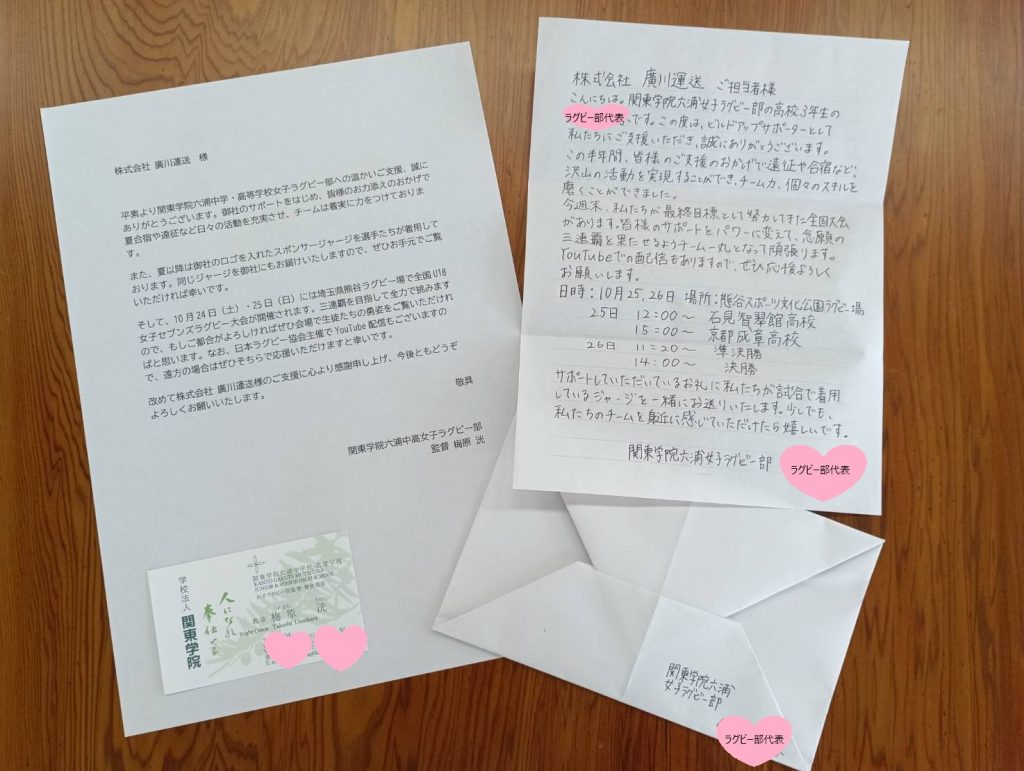 株式会社 廣川運送　様
平素より関東学院六浦中学・高等学校女子ラグビー部への温かいご支援、誠に
ありがとうございます。御社のサポートをはじめ、皆様のお力添えのおかげで
夏合宿や遠征など日々の活動を充実させ、チームは着実に力をつけておりま
す。
また、夏以降は御社のロゴを入れたスポンサージャージを選手たちが着用して
おります。同じジャージを御社にもお届けいたしますので、ぜひお手元でご覧
いただければ幸いです。
そして、10月24日（土）・25日（日）には埼玉県熊谷ラグビー場で全国U18
女子セブンズラグビー大会が開催されます。三連覇を目指して全力で挑みます
ので、もしご都合がよろしければぜひ会場で生徒たちの勇姿をご覧いただけれ
ばと思います。なお、日本ラグビー協会主催でYouTube配信もございますの
で、遠方の場合はぜひそちらで応援いただけますと幸いです。
改めて株式会社 廣川運送様のご支援に心より感謝申し上げ、今後ともどうぞ
よろしくお願いいたします。
敬具
関東学院六浦中高女子ラグビー部
監督 梅原 洸
学校法人 関東学院
人になれ
奉仕せよ
関東学院六浦中学校・高等学校
KANTO GAKUIN MUTSUURA
JUNIOR & SENIOR HIGH SCHOOL
女子ラグビー部監督
教諭 梅原 洸
Rugby Coach Takeshi Umehara
株式会社 廣川運送 ご担当者様
こんにちは。関東学院六浦女子ラグビー部の高校3年生の
ラグビー部代表 です。この度は、ビルドアップサポーターとして
私たちにご支援いただき、誠にありがとうございます。
この半年間、皆様のご支援のおかげで遠征や合宿など、
沢山の活動を実現することができ、チーム力、個々のスキルを
磨くことができました。
今週末、私たちが最終目標として努力してきた全国大会
があります。皆様のサポートをパワーに変えて、念願の
三連覇を果たせるようチーム一丸となって頑張ります。
YouTubeでの配信もありますので、ぜひ応援よろしく
お願いします。
日時：10月25,26日 場所：熊谷スポーツ文化公園ラグビー場
25日 12:00～ 石見智翠館高校
15:00～ 京都成章高校
26日 11:20～ 準決勝
14:00～ 決勝
サポートしていただいているお礼に私たちが試合で着用
しているジャージを一緒にお送りいたします。少しでも、
私たちのチームを身近に感じていただけたら嬉しいです。
関東学院六浦女子ラグビー部 ラグビー部代表
関東学院六浦
女子ラグビー部
ラグビー部代表